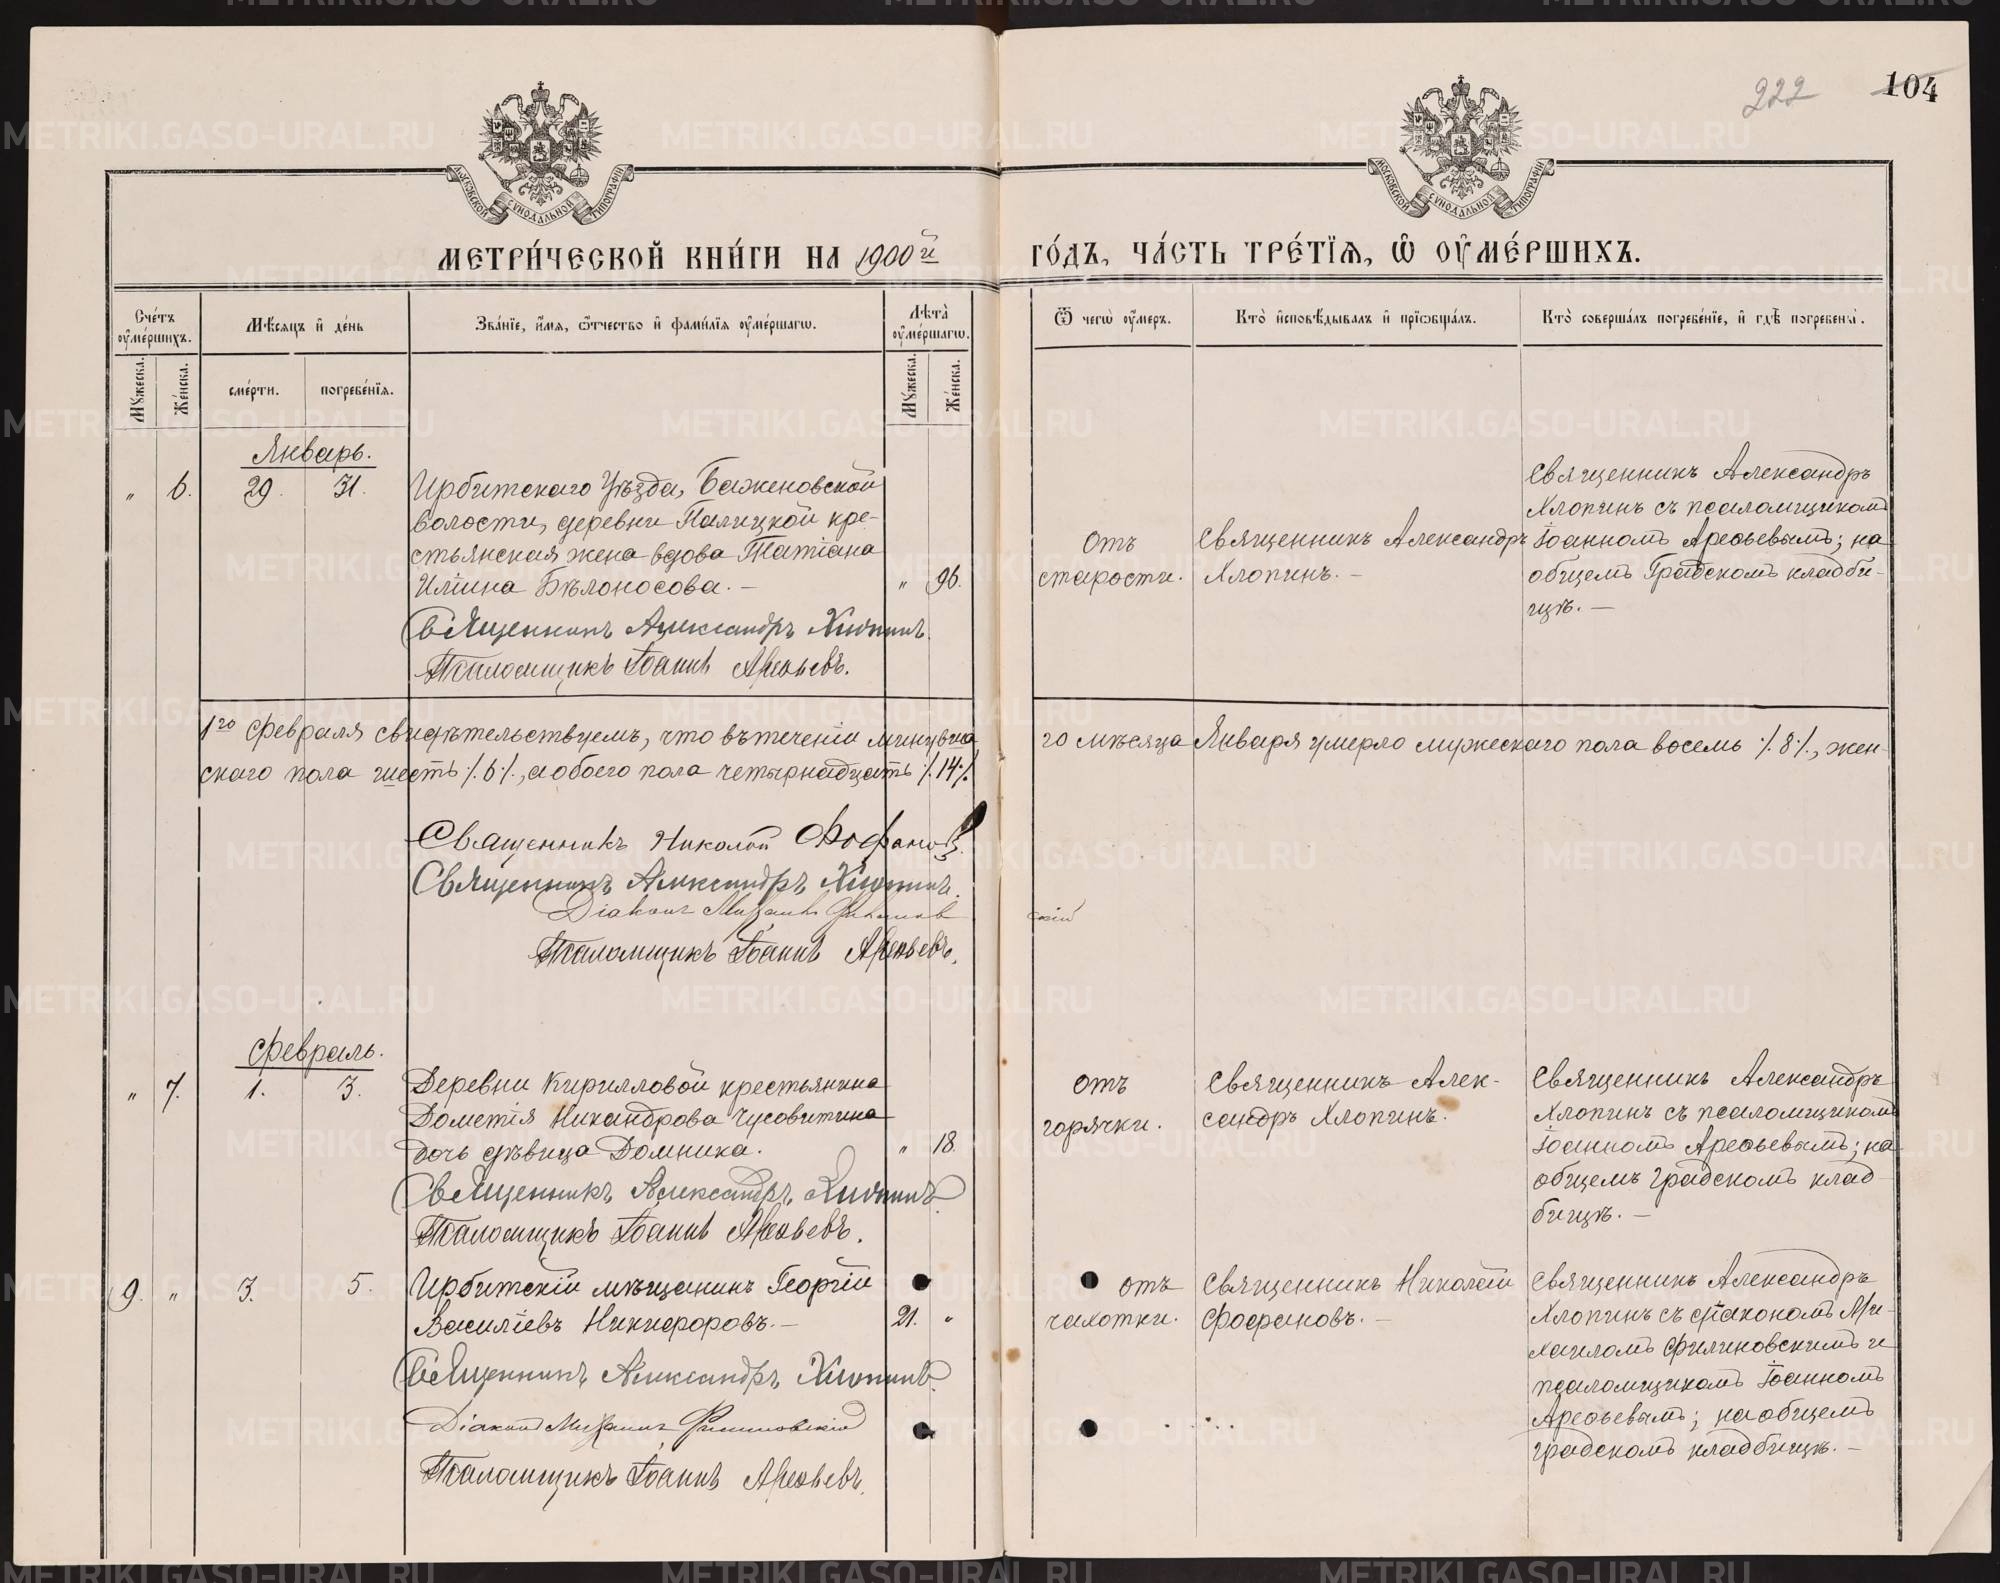 222
104
МОСКОВСКОЙ СѴНОДАЛЬНОЙ ТИПОГРАФІИ
МОСКОВСКОЙ СѴНОДАЛЬНОЙ ТИПОГРАФІИ
МЕТРИ́ЧЕСКОЙ КНИ́ГИ НА 1900й
ГО́ДЪ, ЧА́СТЬ ТРЕ́ТІѦ, Ѽ ОУ҆МЕ́РШИХЪ.
Сче́тъ оу҆ме́ршихъ.
Мꙋ́жеска.
Же́нска.
Мѣ́сяцъ и҆ де́нь
сме́рти.
погребе́нїѧ.
Зва́нїе, и҆́мѧ, ѻ҆́тчество и҆ фами́лїѧ оу҆ме́ршагѡ.
Лѣ́та̀ оу҆ме́ршагѡ.
Мꙋ́жеска.
Же́нска.
Ѿ чегѡ̀ оу҆́меръ.
Кто̀ и҆сповѣ́дывалъ и҆ прїѻбща́лъ.
Кто̀ соверша́лъ погребе́нїе, и҆ гдѣ̀ погребены̀.
Январь.
" 6. 29. 31.
Ирбитскаго Уѣзда, Баженовской
волости, деревни Палицкой кре-
стьянская жена вдова Татіана
Иліина Бѣлоносова. —
" 96.
Священникъ Александръ Хлопинъ.
Псаломщикъ Іоаннъ Арефьевъ.
Отъ
старости.
Священникъ Александръ
Хлопинъ. —
Священникъ Александръ
Хлопинъ съ псаломщикомъ
Іоанномъ Арефьевымъ; на
общемъ Градскомъ кладби-
щѣ. —
1го Февраля свидѣтельствуемъ, что въ теченіи минувша
го мѣсяца Января умерло мужескаго пола восемь ·/.8·/., жен-
скаго пола шесть ·/.6·/., а обоего пола четырнадцать ·/.14·/.
Священникъ Николай Фофановъ.
Священникъ Александръ Хлопинъ.
Діаконъ Михаилъ Филинов
скій
Псаломщикъ Іоаннъ Арефьевъ.
Февраль.
" 7. 1. 3.
Деревни Кирилловой крестьянина
Дометія Никандрова Чусовитина
дочь дѣвица Домника.
" 18.
Священникъ Александръ Хлопинъ.
Псаломщикъ Іоаннъ Арефьевъ.
отъ
горячки.
Священникъ Алек-
сандръ Хлопинъ.
Священникъ Александръ
Хлопинъ съ псаломщикомъ
Іоанномъ Арефьевымъ; на
общемъ градскомъ клад-
бищѣ. —
9. " 3. 5.
Ирбитскій мѣщанинъ Георгій
Василіевъ Никифоровъ. —
21. "
Священникъ Александръ Хлопинъ.
Діаконъ Михаилъ Филиновскій
Псаломщикъ Іоаннъ Арефьевъ.
отъ
чахотки.
Священникъ Николай
Фофановъ. —
Священникъ Александръ
Хлопинъ съ діакономъ Ми-
хаиломъ Филиновскимъ и
псаломщикомъ Іоанномъ
Арефьевымъ; на общемъ
градскомъ кладбищѣ. —
METRIKI.GASO-URAL.RU